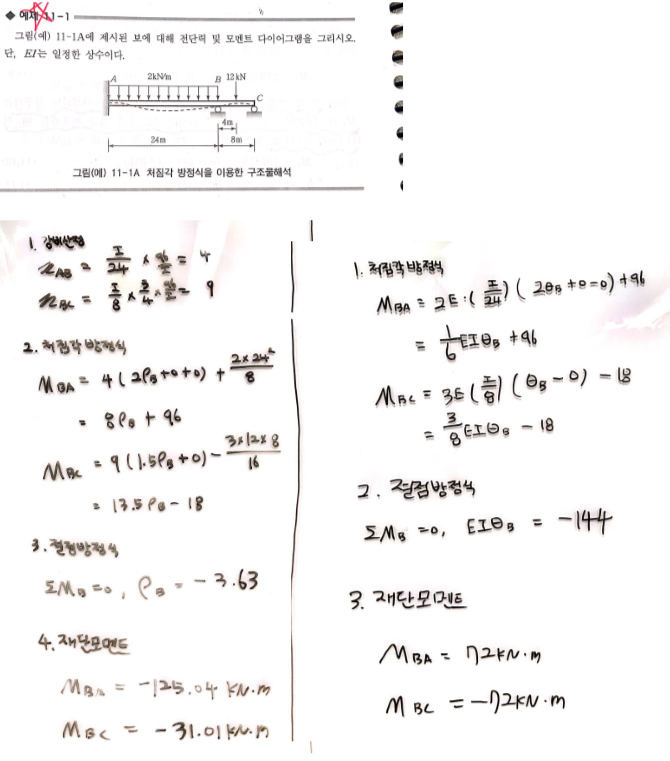 ◆ 예제 11-1
그림(예) 11-1A에 제시된 보에 대해 전단력 및 모멘트 다이어그램을 그리시오.
단, EI는 일정한 상수이다.
A 2kN/m B 12kN
C
4m
24m 8m
그림(예) 11-1A 처짐각 방정식을 이용한 구조물해석
1. 강비산정
k_AB = I/24 × 96/I = 4
k_BC = I/8 × 3/4 × 96/I = 9
2. 처짐각 방정식
M_BA = 4(2φ_B+0+0) + 2×24²/8
= 8φ_B + 96
M_BC = 9(1.5φ_B+0) - 3×12×8/16
= 13.5φ_B - 18
3. 절점방정식
ΣM_B=0, φ_B = -3.63
4. 재단모멘트
M_BA = -125.04 kN·m
M_BC = -31.01 kN·m
1. 처짐각 방정식
M_BA = 2E·(I/24)(2θ_B+0-0)+96
= 1/6 EIθ_B +96
M_BC = 3E(I/8)(θ_B-0) - 18
= 3/8 EIθ_B - 18
2. 절점방정식
ΣM_B=0, EIθ_B = -144
3. 재단모멘트
M_BA = 72kN·m
M_BC = -72kN·m